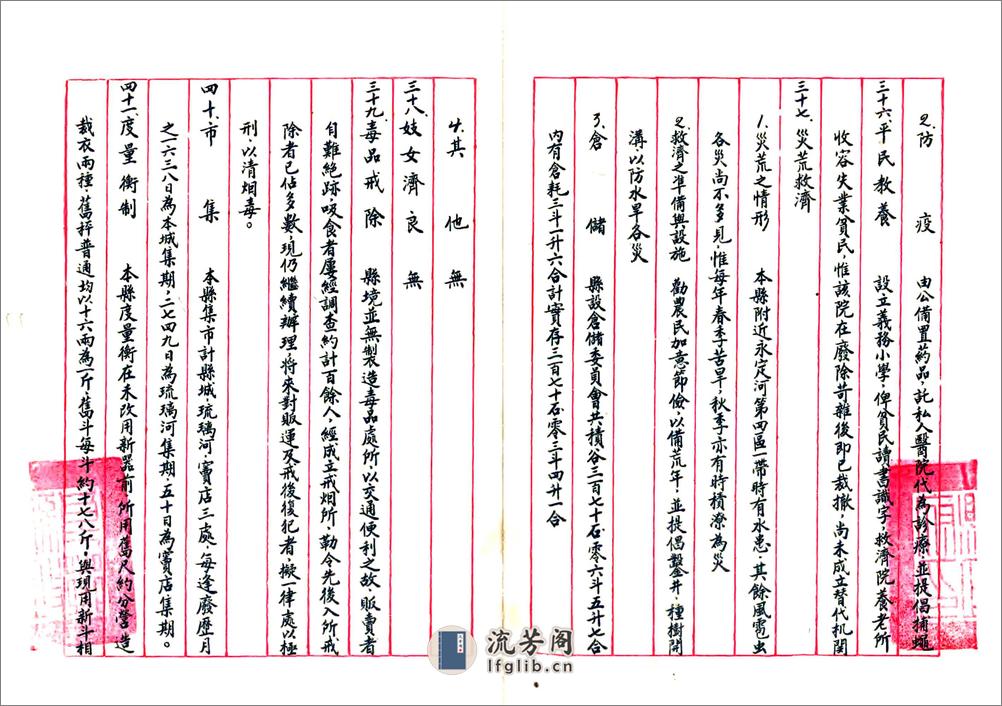 2.防疫　由公備置葯品，託私人醫院代為診療，並提倡捕蠅
三十六、平民教養　設立義務小學，俾貧民讀書識字，救濟院養老所
收容失業貧民，惟該院在廢除苛雜後即已裁撤，尚未成立替代机関
三十七、災荒救濟
1.災荒之情形　本縣附近永定河第四區一帶時有水患，其餘風雹虫
各災尚不多見，惟每年春季苦旱，秋季亦有時積潦為災
2.救濟之準備與設施　勸農民加意節儉，以備荒年，並提倡鑿井，種樹開
溝，以防水旱各災
3.倉儲　縣設倉儲委員會共積谷三百七十石零六斗五升七合
內有倉耗三斗一升六合計實存三百七十石零三斗四升一合
4.其他無
三十八、妓女濟良　無
三十九、毒品戒除　縣境並無製造毒品處所，以交通便利之故，販賣者
自難絕跡，吸食者屢經調查約計百餘人，經成立戒烟所，勒令先後入所戒
除者已佔多數，現仍繼續辦理，將來對販運及戒後復犯者，擬一律處以極
刑以清烟毒。
四十、市集　本縣集市計縣城，琉璃河，竇店三處，每逢廢歷月
之一六三八日為本城集期，二七四九日為琉璃河集期，五十日為竇店集期。
四十一度量衡制　本縣度量衡在未改用新器前，所用舊尺約分營造
裁衣兩種，舊秤普通均以十六兩為一斤，舊斗每斗約十七八斤，與現用新斗相
流芳阁
lfglib.cn